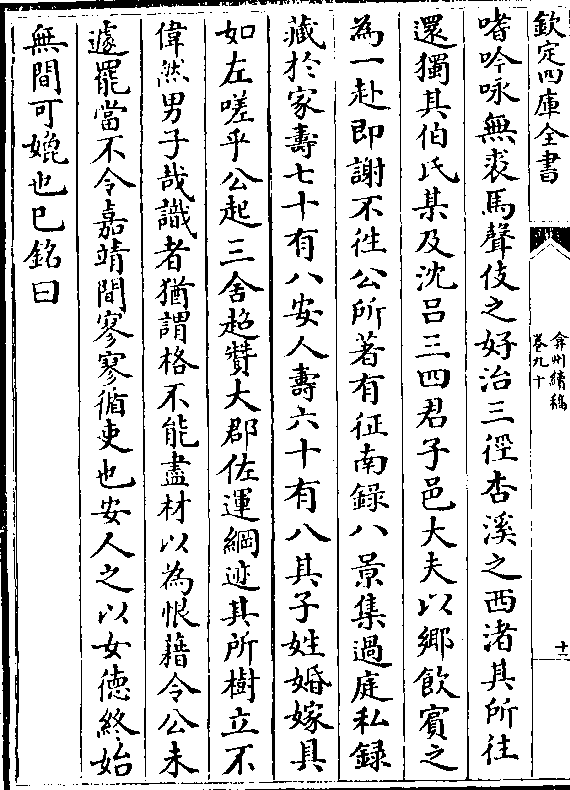 欽定四庫全書
弇州續稿
卷九十
十二
嗜吟咏無裘馬聲伎之好治三徑杏溪之西渚其所往
還獨其伯氏某及沈呂三四君子邑大夫以鄉飲賓之
為一赴即謝不徃公所著有征南錄八景集過庭私錄
藏於家壽七十有八安人壽六十有八其子姓婚嫁具
如左嗟乎公起三舍超贊大郡佐運綱迹其所樹立不
偉然男子哉識者猶謂格不能盡材以為恨藉令公未
遽罷當不令嘉靖間寥寥循吏也安人之以女徳終始
無間可媲也已銘曰